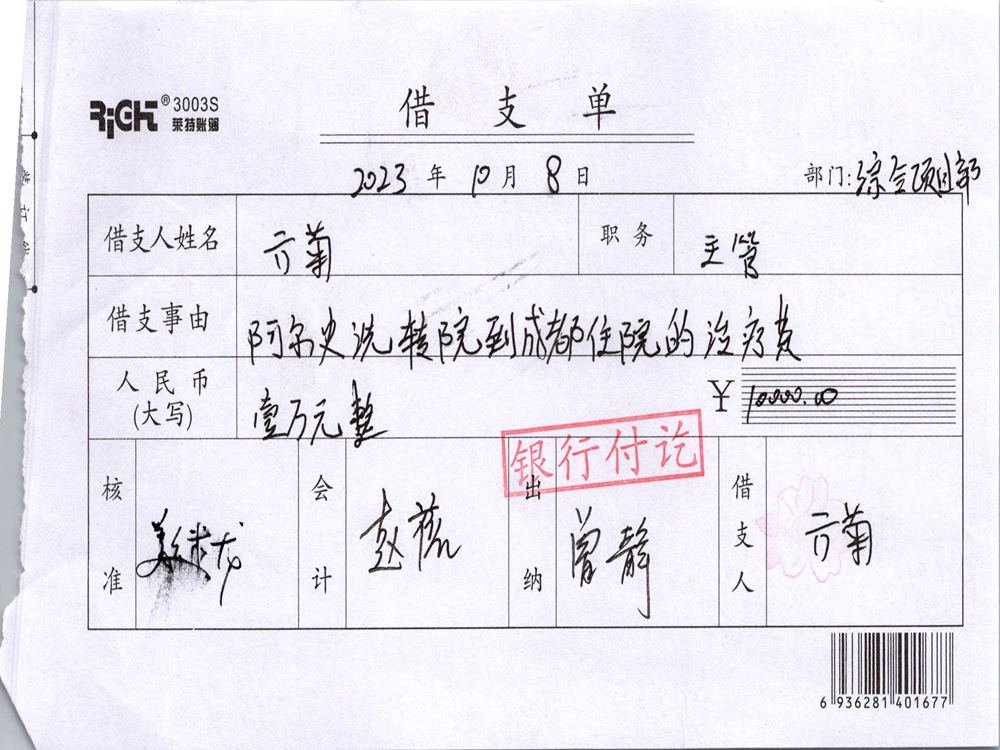 RiGHT® 3003S
莱特账簿
借 支 单
2023 年 10 月 8 日 部门:综合项目部
借支人姓名 亓菊 职务 主管
借支事由 阿尔史洗转院到成都住院的治疗费
人民币(大写) 壹万元整 ￥10000.00
银行付讫
核准 会计 赵 出纳 曾静 借支人 亓菊
6 936281 401677